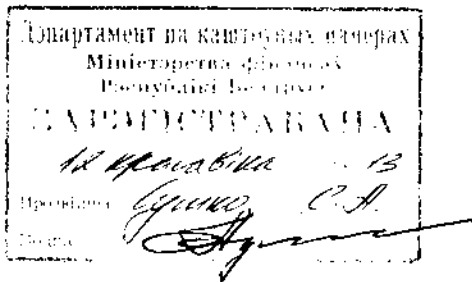 Дэпартамент па каштоўных паперах
Міністэрства фінансаў
Рэспублікі Беларусь
ЗАРЭГІСТРАВАНА
12 красавіка 13
Прозвішча Сушко С.А.
Подпіс